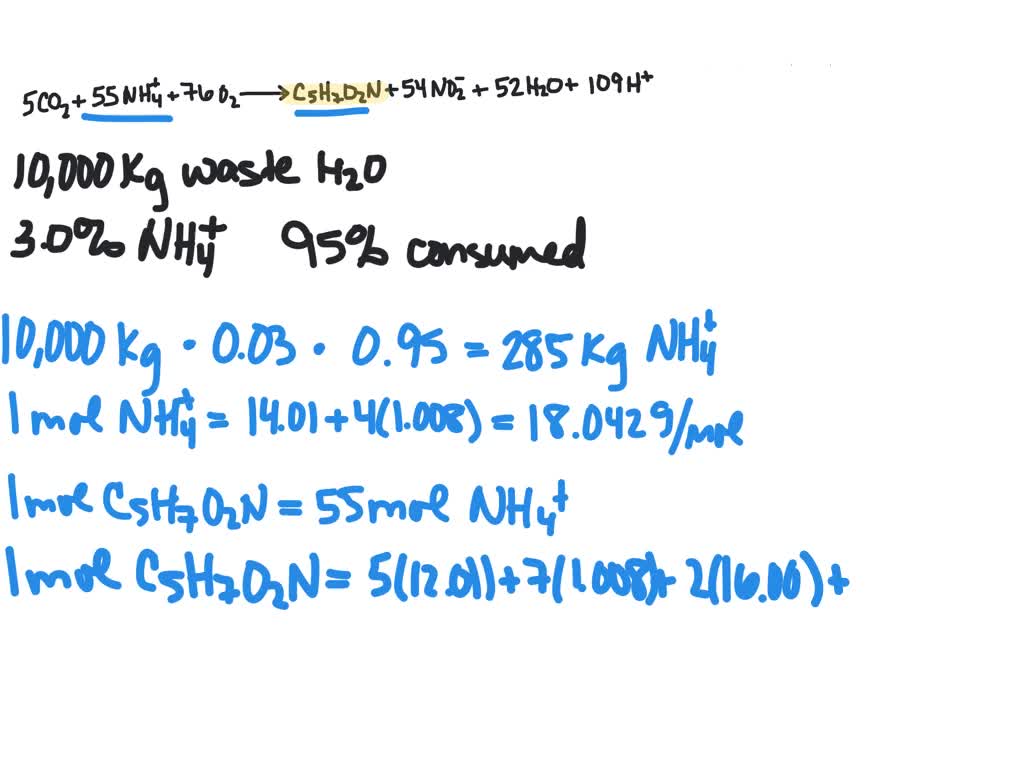 5CO₂ + 55NH₄⁺ + 76O₂ ⟶ C₅H₇O₂N + 54NO₂⁻ + 52H₂O + 109H⁺
10,000 Kg waste H₂O
3.0% NH₄⁺ 95% consumed
10,000 Kg • 0.03 • 0.95 = 285 Kg NH₄⁺
1 mol NH₄⁺ = 14.01 + 4(1.008) = 18.042 g/mol
1 mol C₅H₇O₂N = 55 mol NH₄⁺
1 mol C₅H₇O₂N = 5(12.01) + 7(1.008) + 2(16.00) +